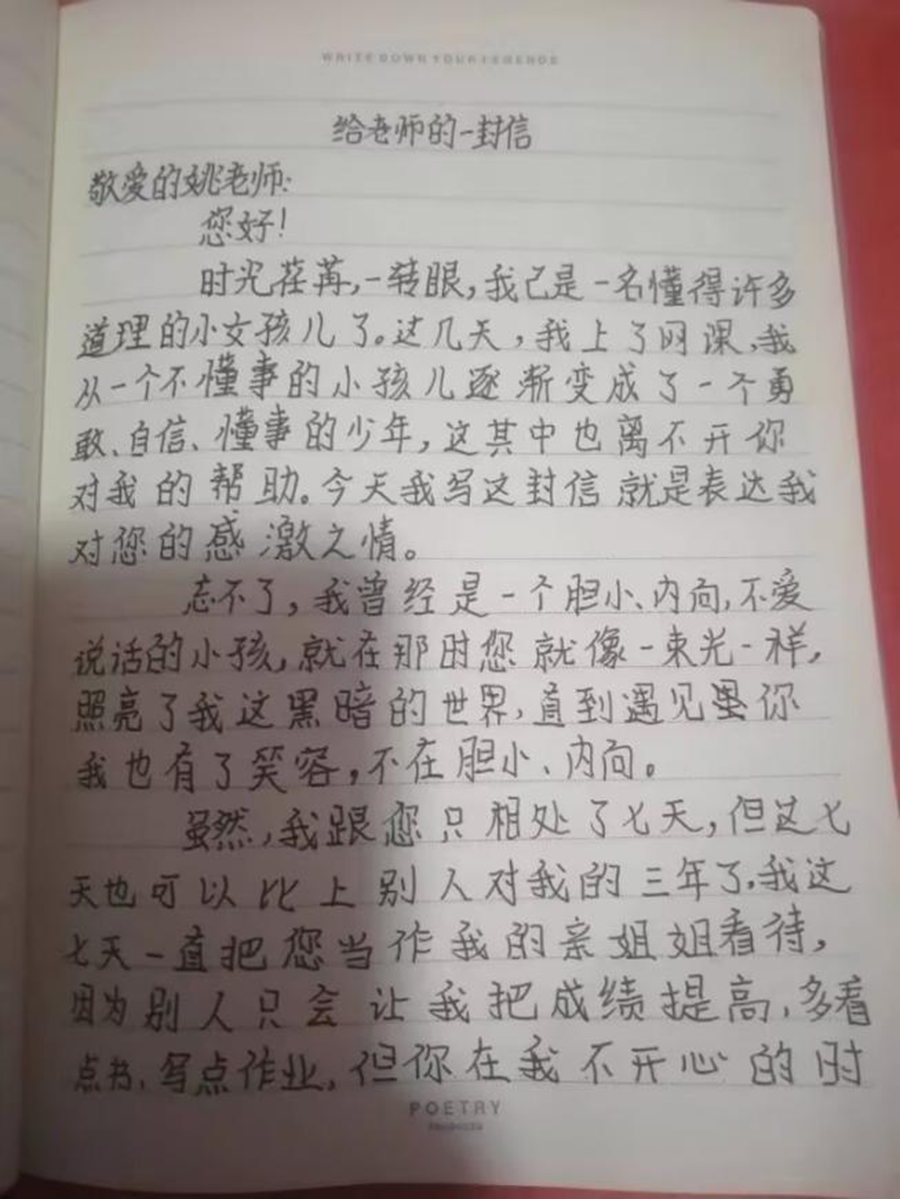 WRITE DOWN YOUR LEGENDS
给老师的一封信
敬爱的姚老师:
您好!
时光荏苒,一转眼,我已是一名懂得许多
道理的小女孩儿了。这几天,我上了网课,我
从一个不懂事的小孩儿逐渐变成了一个勇
敢、自信、懂事的少年,这其中也离不开你
对我的帮助。今天我写这封信就是表达我
对您的感激之情。
忘不了,我曾经是一个胆小、内向,不爱
说话的小孩,就在那时您就像一束光一样,
照亮了我这黑暗的世界,直到遇见你
我也有了笑容,不在胆小、内向。
虽然,我跟您只相处了七天,但这七
天也可以比上别人对我的三年了,我这
七天一直把您当作我的亲姐姐看待,
因为别人只会让我把成绩提高,多看
点书、写点作业,但你在我不开心的时
POETRY